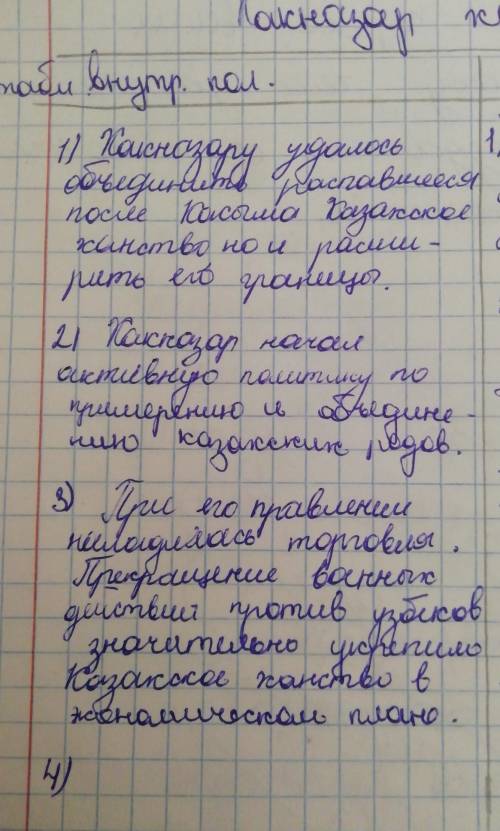 Хакназар х
внутр. пол.
1) Хакназару удалось
1)
объединить распавшееся
после Касыма Казахское
ханство но и расши-
рить его границы.
2) Хакназар начал
активную политику по
примерению и объедине-
нию казахских родов.
3) При его правлении
наладилась торговля.
Прекращение военных
действий против узбеков
значительно укрепило
Казахское ханство в
экономическом плане.
4)